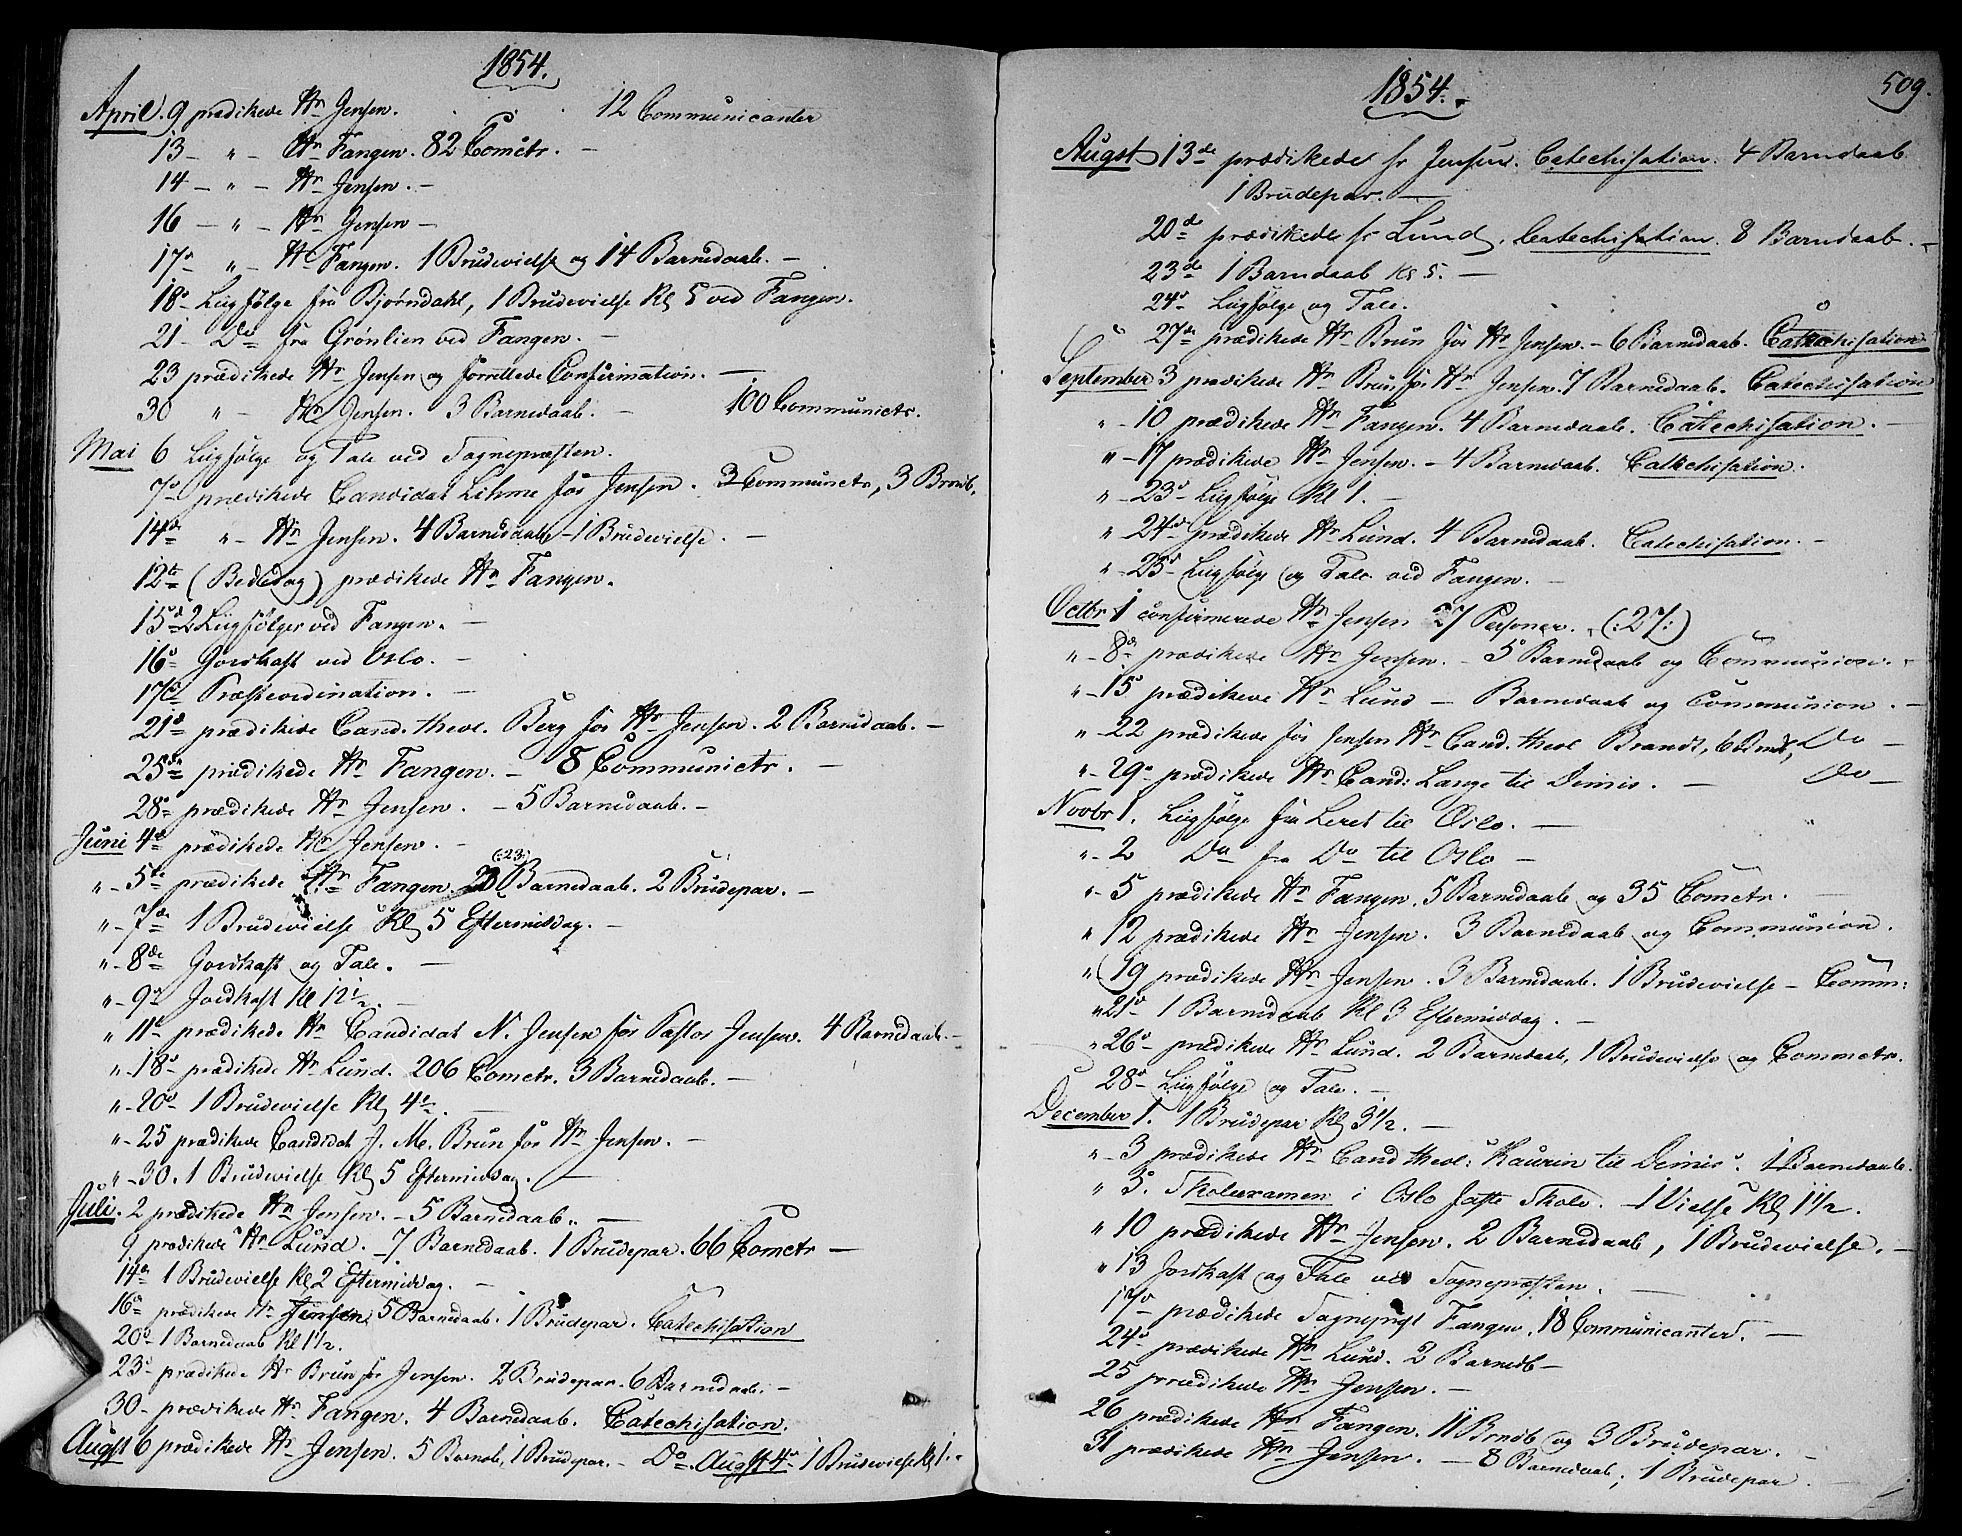 1854.
April. 9 prædikede Hr Jensen. 12 Communicanter
13 - " - Hr Fangen. 82 Comctr. -
14 - " - Hr Jensen. -
16 - " - Hr Jensen -
17 " - Hr Fangen. 1 Brudevielse og 14 Barnedaab. -
18 Liigfølge fra Bjørndahl, 1 Brudevielse Kl 5 ved Fangen.
21 - Do fra Grønlien ved Fangen. -
23 prædikede Hr Jensen og forrettede Confirmation. -
30 " - Hr Jensen. 3 Barnedaab. - 100 Communictr.
Mai 6 Liigfølge og Tale ved Sognepræsten.
7 prædikede Candidat Lihme for Jensen. 3 Communictr, 3 Brndb.
14de " - Hr Jensen. 4 Barnedaab - 1 Brudevielse. -
12te (Bededag) prædikede Hr Fangen.
15d 2 Liigfølger ved Fangen. -
16 Jordkast ved Oslo. -
17 Præsteordination. -
21 prædikede Cand. theol. Berg for Hr Jensen. 2 Barnedaab. -
25de prædikede Hr Fangen. - 8 Communictr. -
28 prædikede Hr Jensen. - 5 Barnedaab. -
Juni 4de prædikede Hr Jensen. -
" - 5te prædikede Hr Fangen 23 (:23:) Barnedaab. 2 Brudepar. -
" - 7de 1 Brudevielse Kl 5 Eftermiddag. -
" - 8de Jordkast og Tale. -
" - 9 Jordkast Kl 12½. -
" 11 prædikede Hr Candidat N. Jensen for Pastor Jensen. 4 Barnedaab. -
" - 18 prædikede Hr Lund. 206 Comctr. 3 Barnedaab. -
" - 20 1 Brudevielse Kl 4½. -
" - 25 prædikede Candidat J. M. Brun for Hr Jensen. -
" - 30. 1 Brudevielse Kl 5 Eftermiddag. -
Juli. 2 prædikede Hr Jensen. - 5 Barnedaab. -
9 prædikede Hr Lund. 7 Barnedaab. 1 Brudepar. 66 Comctr -
14 1 Brudevielse Kl 2 Eftermiddag. -
16 prædikede Hr Jensen, 5 Barnedaab. 1 Brudepar. Catechisation
20 1 Barnedaab Kl 1½.
23 prædikede Hr Brun for Jensen. 2 Brudepar. 6 Barnedaab. -
30 - prædikede Hr Fangen. 4 Barnedaab. Catechisation.
Augst 6 prædikede Hr Jensen. 5 Barnedb, 1 Brudepar. - Do Augst 4 1 Brudevielse Kl 1. -
1854. 509.
Augst 13de prædikede hr Jensen. Catechisation. 4 Barndaab
1 Brudepar. -
20de prædikede hr Lund, Catechisation. 8 Barndaab. -
23de 1 Barndaab Kl 5. -
24 Liigfølge og Tale.
27de prædikede Hr Brun for Hr Jensen. - 6 Barnedaab. Catechisation
September 3 prædikede Hr Brun for Hr Jensen. 7 Barnedaab. Catechisation
" - 10 prædikede Hr Fangen. 4 Barnedaab. Catechisation. -
" - 17 prædikede Hr Jensen. - 4 Barnedaab. Catechisation.
" - 23 Liigfølge Kl 1. -
" - 24 prædikede Hr Lund. 4 Barnedaab. Catechisation. -
" - 25 Liigfølge og Tale ved Fangen. -
Octbr 1 confirmerede Hr Jensen 27 Personer. (:27:)
" - 8 prædikede Hr Jensen. - 5 Barnedaab og Communion. -
" - 15 prædikede Hr Lund - Barnedaab og Communion. -
" - 22 prædikede for Jensen Hr Cand. theol Brandt, 6 Brndb, Do -
" - 29 prædikede Hr Cand: Lange til Dimis. - Do -
Novbr 1. Liigfølge fra Leret til Oslo. -
" - 2 Do fra Do til Oslo -
" - 5 prædikede Hr Fangen. 5 Barnedaab og 35 Comctr. -
" 12 prædikede Hr Jensen. 3 Barnedaab og Communion.
" 19 prædikede Hr Jensen. 3 Barnedaab. 1 Brudevielse - Comm:
" 21 1 Barnedaab Kl 3 Eftermiddag. -
" 26 prædikede Hr Lund. 2 Barnedaab, 1 Brudevielse og Commctr.
28 Liigfølge og Tale. -
December 1. 1 Brudepar Kl 3½. -
" - 3 prædikede Hr Cand theol: Kaurin til Dimis. 1 Barnedaab.
" 5. Skoleexamen i Oslo faste Skole. 1 Vielse Kl 1½.
" 10 prædikede Hr Jensen. 2 Barnedaab, 1 Brudevielse. -
" 13 Jordkast og Tale ved Sognepræsten. -
17 prædikede Sogneprst Fangen, 18 Communicanter. -
24 prædikede Hr Lund. 2 Barnedb -
25 prædikede Hr Jensen. -
26 prædikede Hr Fangen. 11 Brndb og 3 Brudepar. -
31 prædikede Hr Jensen. - 8 Barnedaab, 1 Brudepar. -